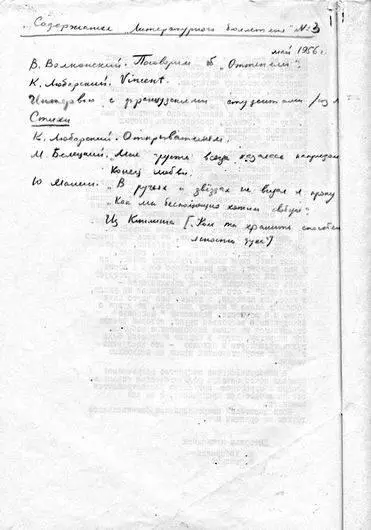 Содержание „Литературного бюллетеня" №3
май 1956 г.
В. Волконский. Поговорим об „Оттепели".
К. Любарский. Vincent.
Интервью с французскими студентами
Стихи
К. Любарский. Открывателям.
М. Белецкий. Мне грусть всегда казалась
Конец любви.
Ю
„В ручьях и звёздах не видал я проку
„Как мы беспощадно хотим свободы"
Из Киплинга [„Коль ты хранить способен
ясность духа"]